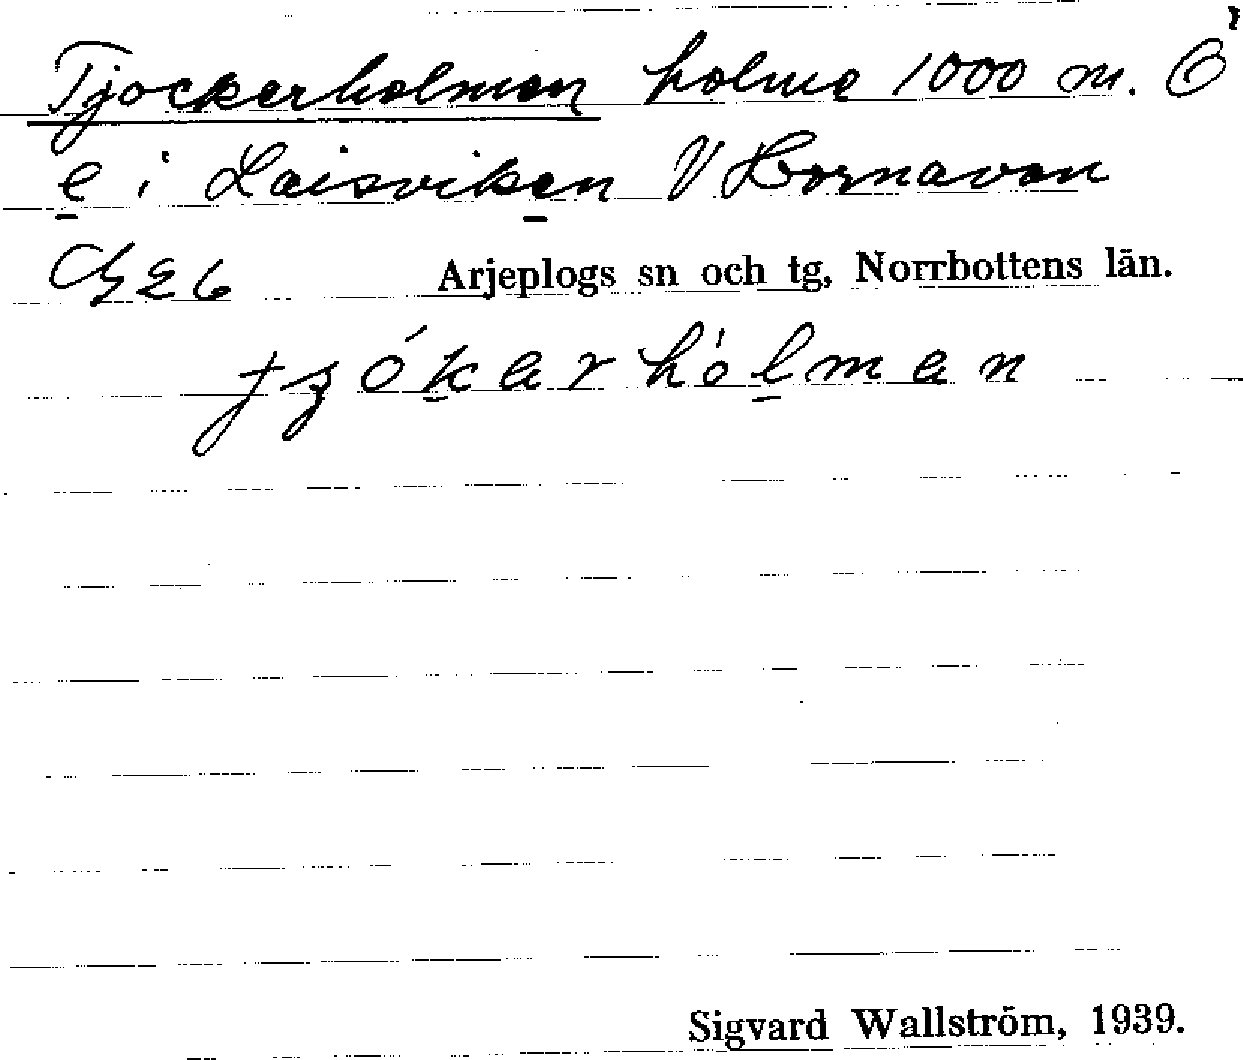 Tjockerholmen holme 1000 m. Ö
e i Laisviken V Hornavan
Ch26
Arjeplogs sn och tg, Norrbottens län.
tʒókerhólmen
Sigvard Wallström, 1939.